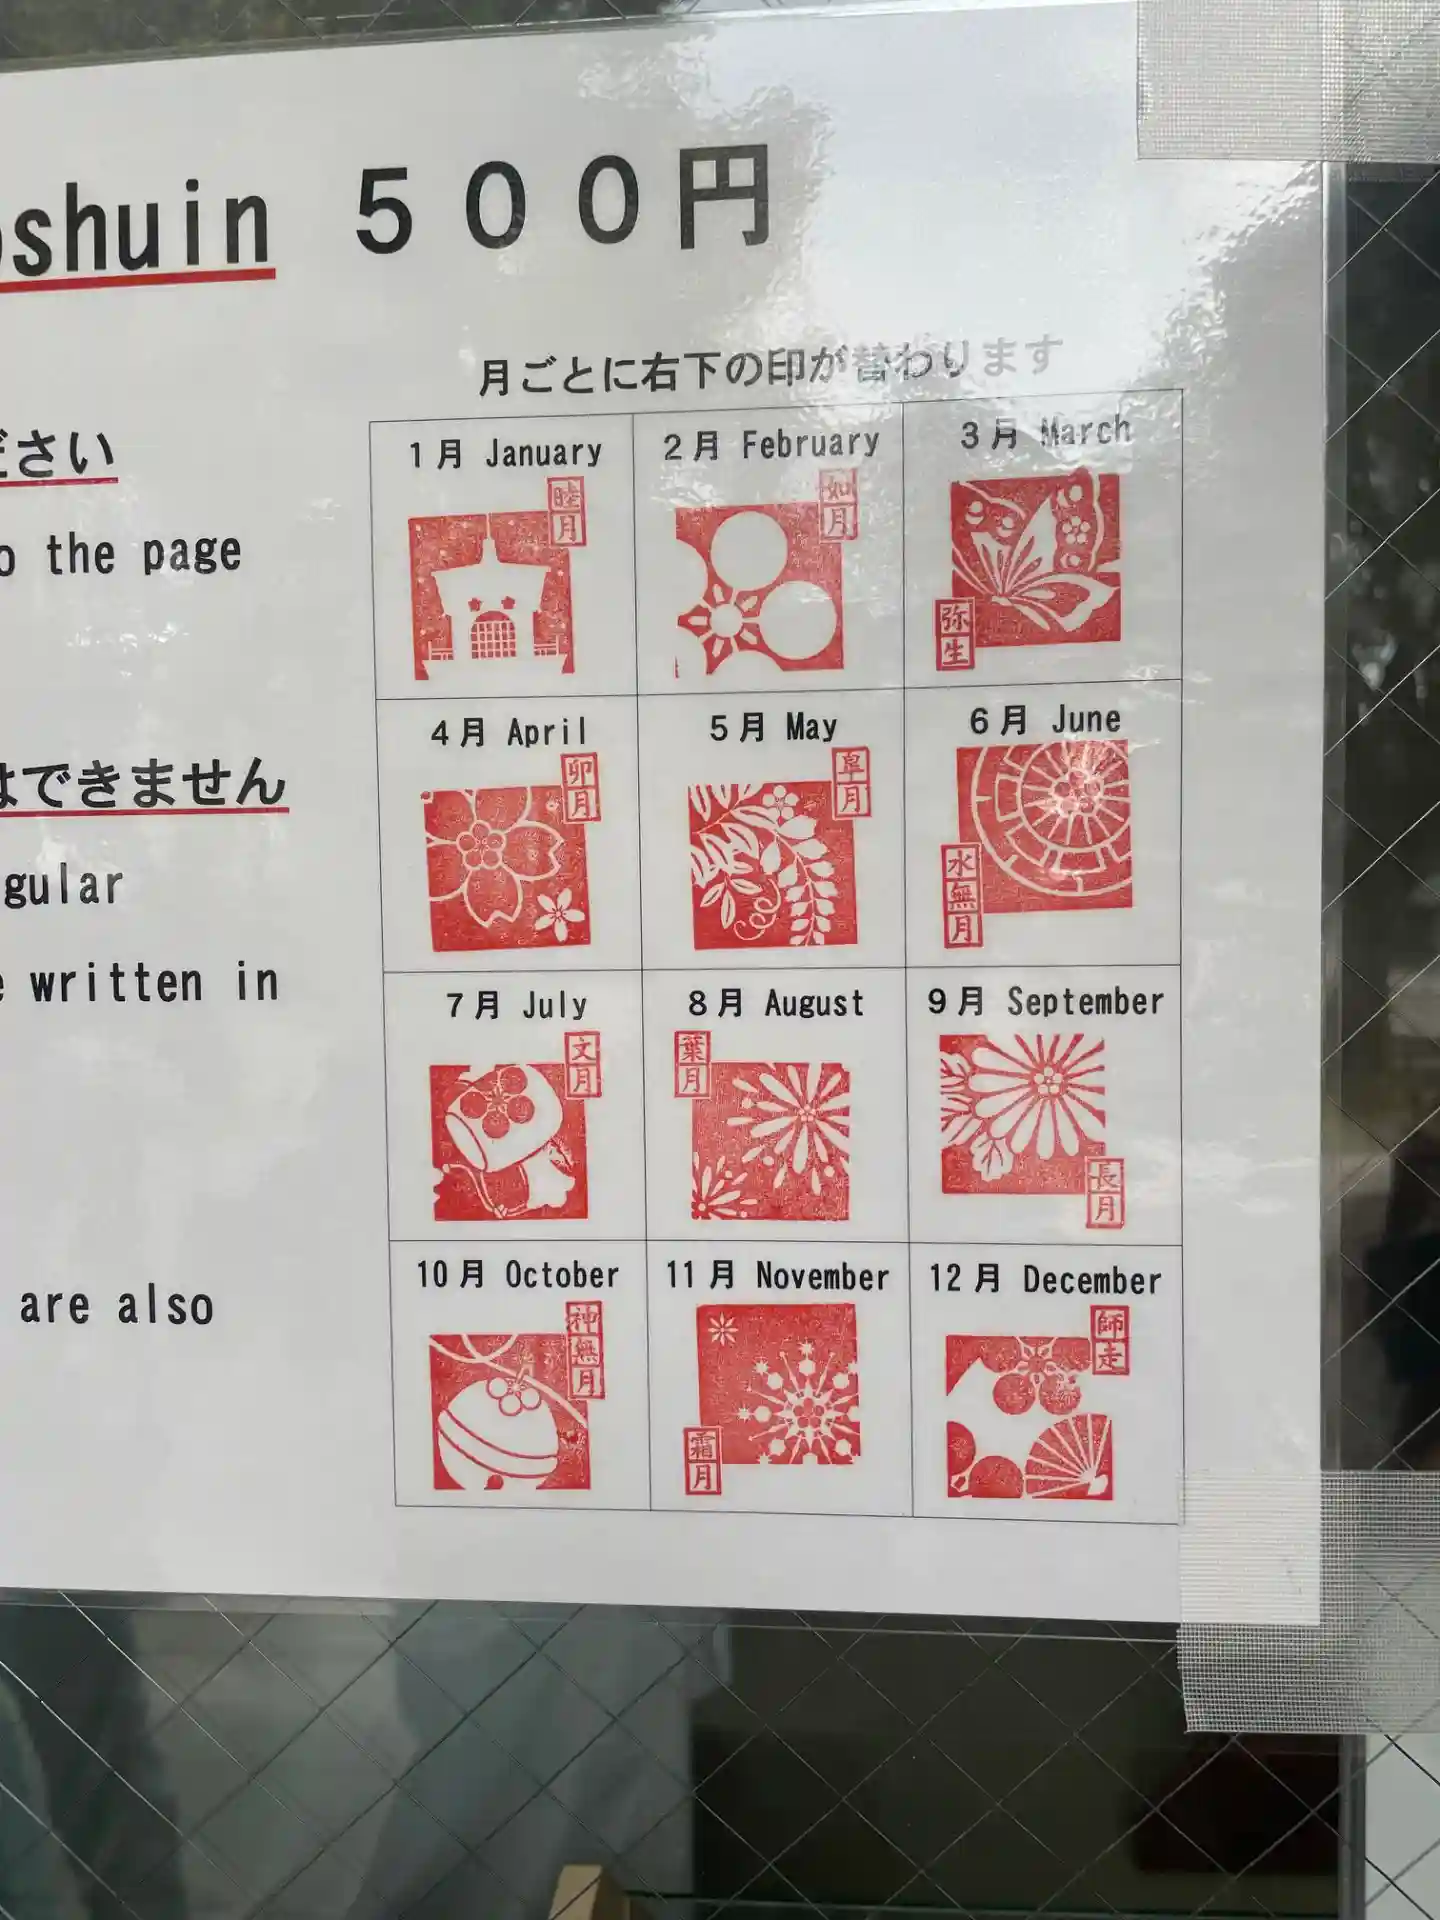 oshuin 500円
ださい
o the page
はできません
gular
e written in
are also
月ごとに右下の印が替わります
1月 January
睦月
2月 February
如月
3月 March
弥生
4月 April
卯月
5月 May
皐月
6月 June
水無月
7月 July
文月
8月 August
葉月
9月 September
長月
10月 October
神無月
11月 November
霜月
12月 December
師走